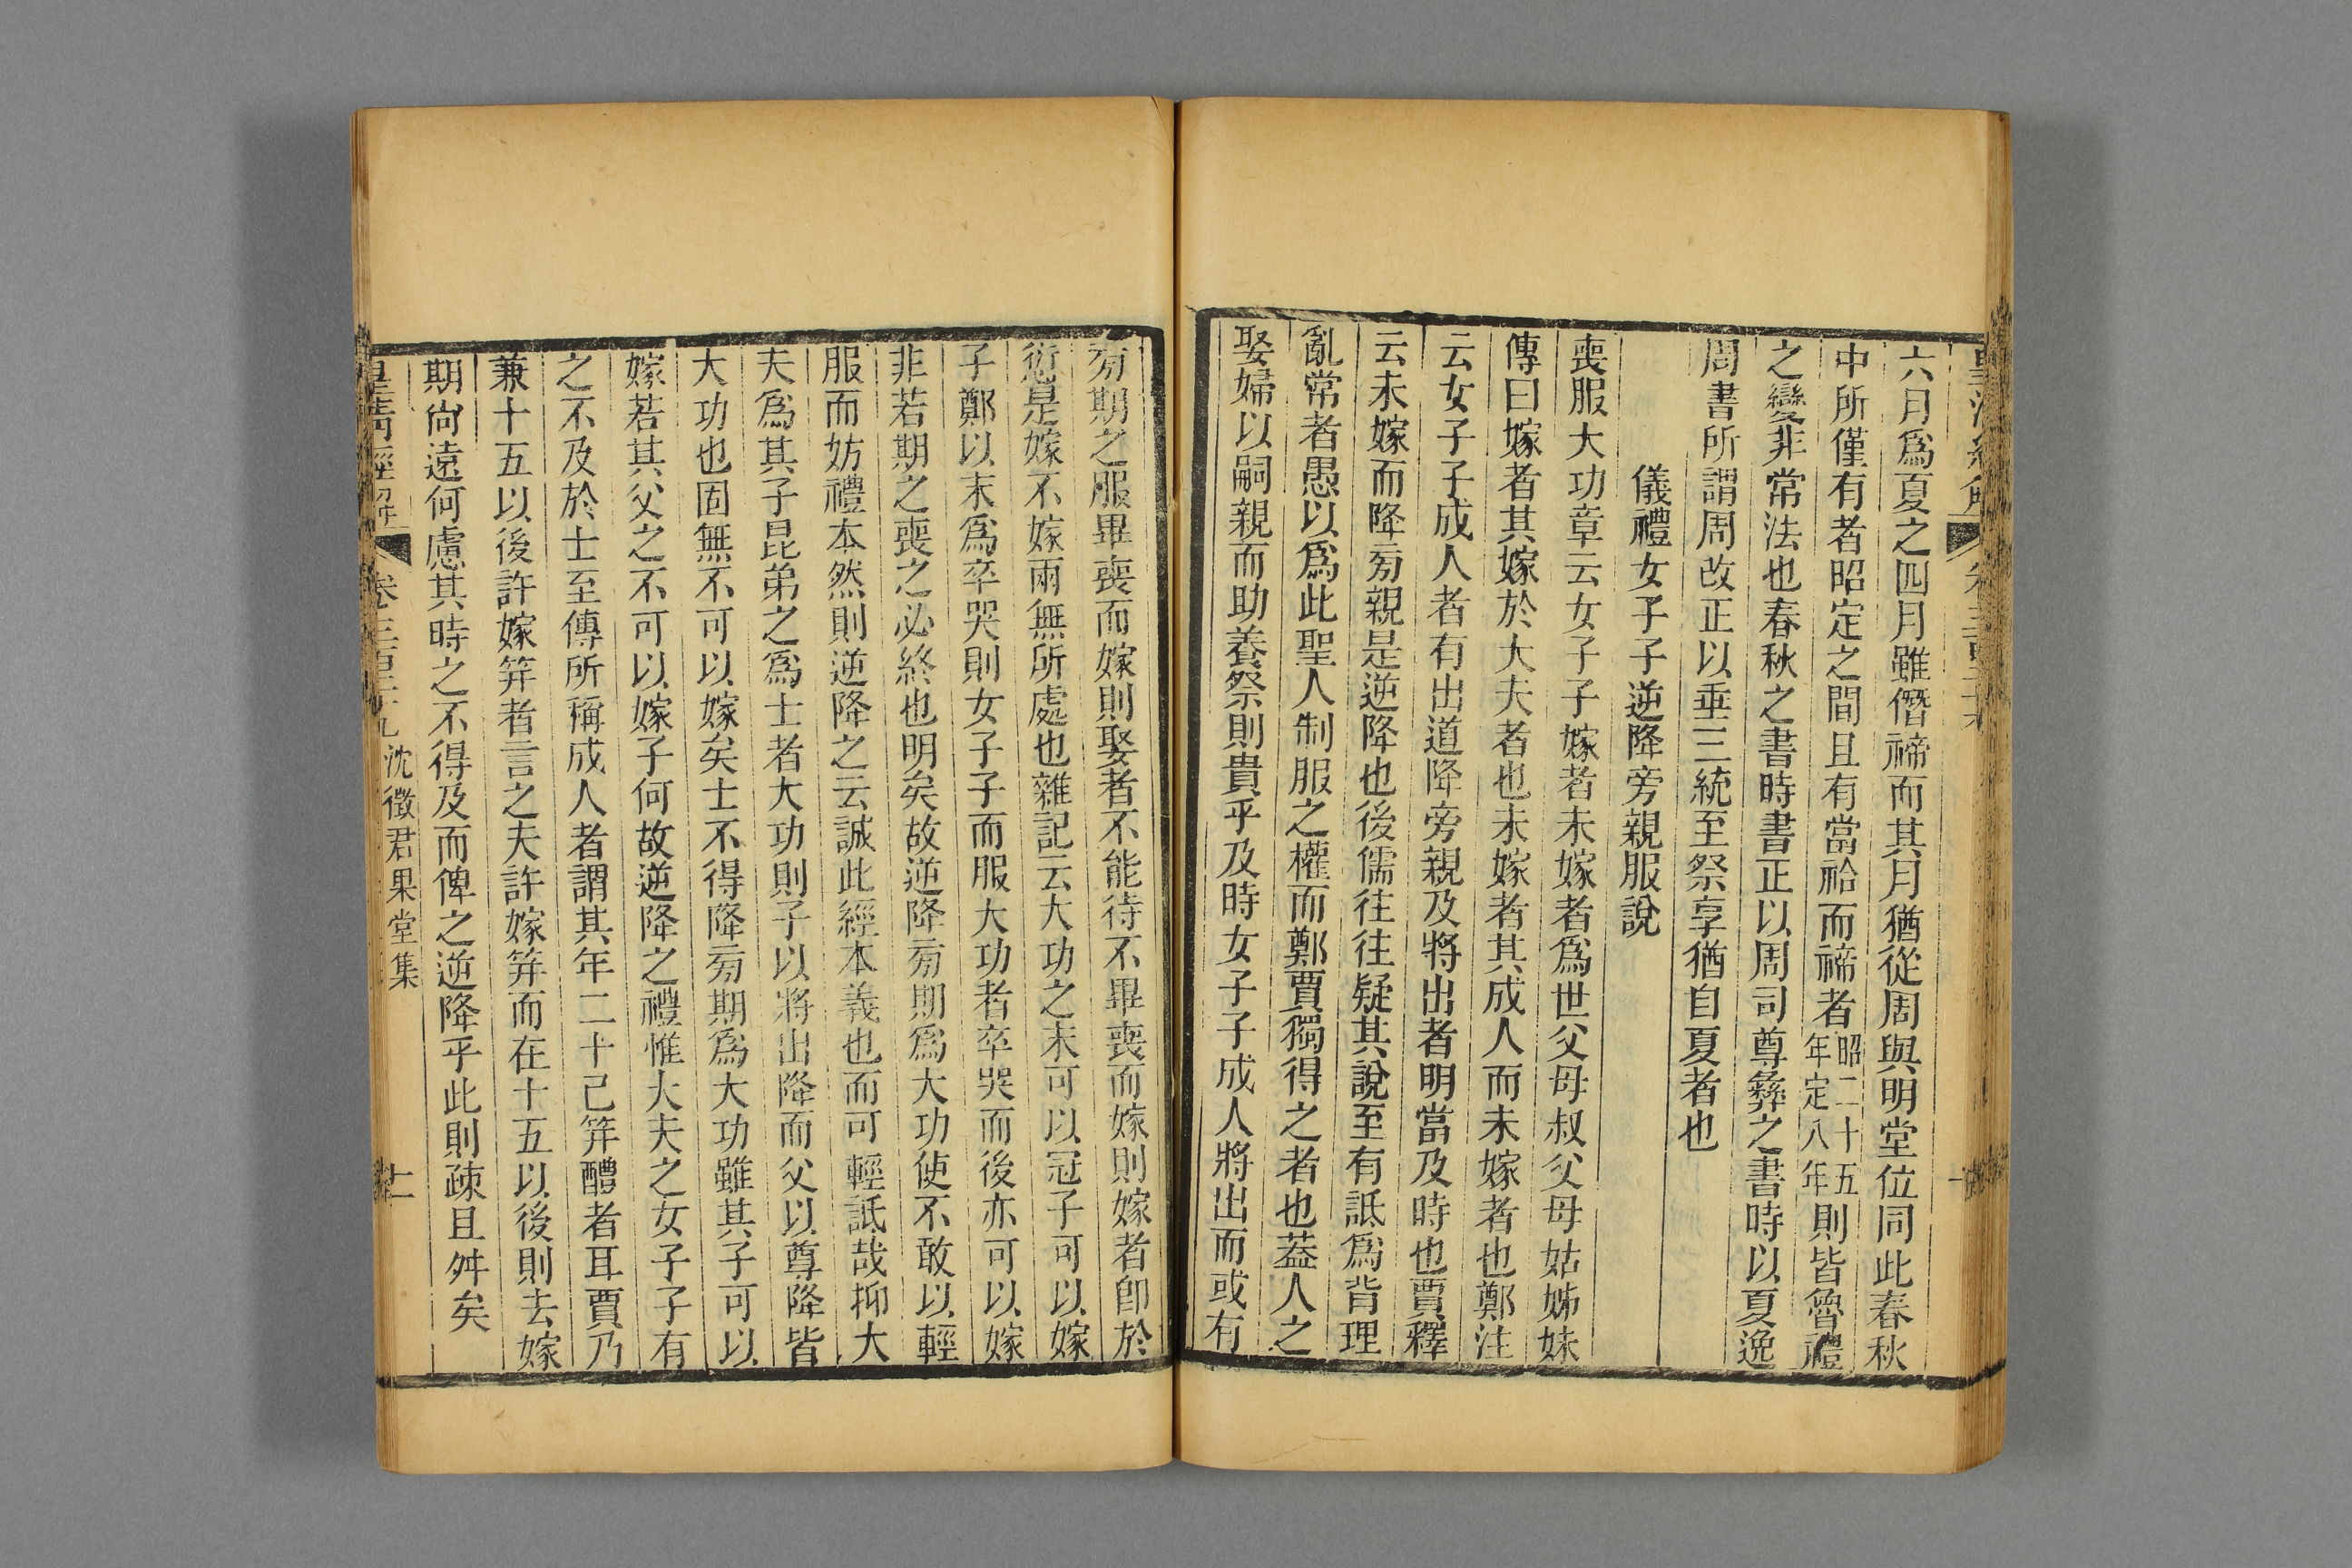 六月爲夏之四月雖僭禘而其月猶從周與明堂位同此春秋
中所僅有者昭定之間且有當祫而禘者昭二十五年定八年則皆魯禮
之變非常法也春秋之書時書正以周司尊彝之書時以夏逸
周書所謂周改正以垂三統至祭享猶自夏者也
儀禮女子子逆降旁親服說
喪服大功章云女子子嫁者未嫁者爲世父母叔父母姑姊妹
傳曰嫁者其嫁於大夫者也未嫁者其成人而未嫁者也鄭注
云女子子成人者有出道降旁親及將出者明當及時也賈釋
云未嫁而降旁親是逆降也後儒往往疑其說至有詆爲背理
亂常者愚以爲此聖人制服之權而鄭賈獨得之者也葢人之
娶婦以嗣親而助養祭則貴乎及時女子子成人將出而或有
旁期之服畢喪而嫁則娶者不能待不畢喪而嫁則嫁者卽於
愆是嫁不嫁兩無所處也雜記云大功之末可以冠子可以嫁
子鄭以末爲卒哭則女子子而服大功者卒哭而後亦可以嫁
非若期之喪之必終也明矣故逆降旁期爲大功使不敢以輕
服而妨禮本然則逆降之云誠此經本義也而可輕詆哉抑大
夫爲其子昆弟之爲士者大功則子以將出降而父以尊降皆
大功也固無不可以嫁矣士不得降旁期爲大功雖其子可以
嫁若其父之不可以嫁子何故逆降之禮惟大夫之女子子有
之不及於士至傳所稱成人者謂其年二十己笄醴者耳賈乃
兼十五以後許嫁笄者言之夫許嫁笄而在十五以後則去嫁
期尙遠何慮其時之不得及而俾之逆降乎此則疎且舛矣
皇清經解 卷三百二十九 沈徵君果堂集 十一